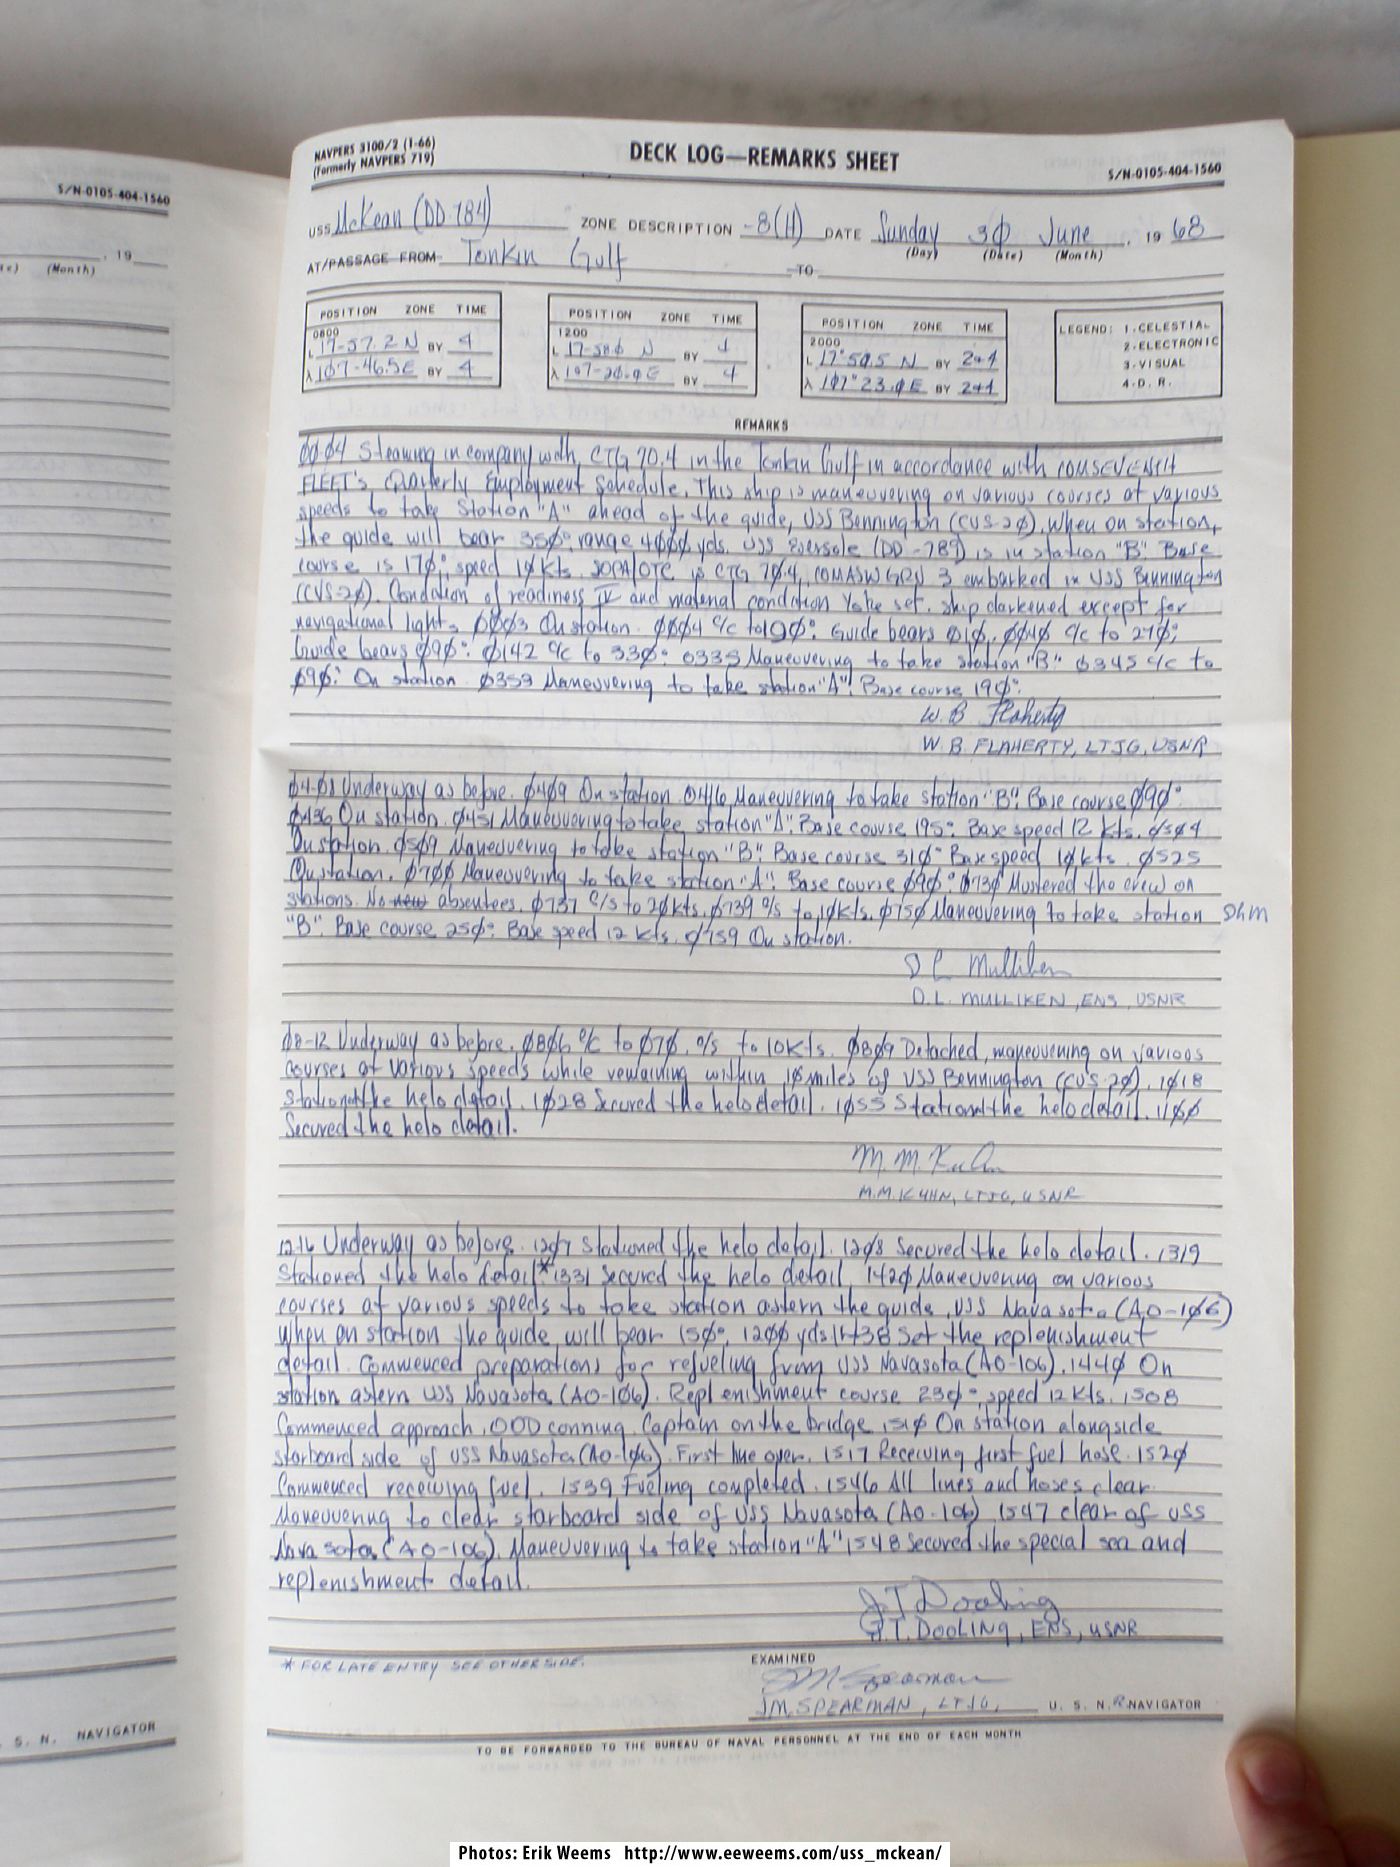 S/N-0105-404-1560
, 19
(Month)
S. N. NAVIGATOR
NAVPERS 3100/2 (1-66)
(Formerly NAVPERS 719)
DECK LOG—REMARKS SHEET
S/N-0105-404-1560
USS McKean (DD-784) ZONE DESCRIPTION -8(H) DATE Sunday 30 June , 19 68
(Day) (Date) (Month)
AT/PASSAGE FROM Tonkin Gulf TO
POSITION ZONE TIME
0800
L 17-57.2 N BY 4
λ 107-46.5E BY 4
POSITION ZONE TIME
1200
L 17-58.0 N BY 4
λ 107-20.0E BY 4
POSITION ZONE TIME
2000
L 17°50.5 N BY 2+4
λ 107°23.0E BY 2+4
LEGEND: 1.CELESTIAL
2.ELECTRONIC
3.VISUAL
4.D. R.
REMARKS
00-04 Steaming in company with CTG 70.4 in the Tonkin Gulf in accordance with COMSEVENTH
FLEET's Quarterly Employment Schedule. This ship is maneuvering on various courses at various
speeds to take Station "A" ahead of the guide, USS Bennington (CVS-20). When on station,
the guide will bear 350°, range 4000 yds. USS Eversole (DD-789) is in station "B". Base
course is 170°, speed 10 kts. SOPA/OTC is CTG 70.4, COMASWGRU 3 embarked in USS Bennington
(CVS-20). Condition of readiness IV and material condition Yoke set. Ship darkened except for
navigational lights. 0003 On station. 0004 C/C to 190°. Guide bears 010°. 0040 C/C to 270°;
Guide bears 090°. 0142 C/C to 330°. 0335 Maneuvering to take station "B". 0345 C/C to
090°. On station. 0353 Maneuvering to take station "A". Base course 190°.
W. B Flaherty
W. B. FLAHERTY, LTJG, USNR
04-08 Underway as before. 0409 On station. 0416 Maneuvering to take station "B". Base course 090°.
0436 On station. 0451 Maneuvering to take station "A". Base course 195°. Base speed 12 kts. 0504
On station. 0509 Maneuvering to take station "B". Base course 310°. Base speed 10 kts. 0525
On station. 0700 Maneuvering to take station "A". Base course 090°. 0730 Mustered the crew on
stations. No new absentees. 0737 C/S to 20 kts. 0739 C/S to 10 kts. 0750 Maneuvering to take station DLM
"B". Base course 250°. Base speed 12 kts. 0759 On station.
D L Mulliken
D.L. MULLIKEN, ENS, USNR
08-12 Underway as before. 0806 C/C to 070°. C/S to 10 kts. 0809 Detached, maneuvering on various
courses at various speeds while remaining within 10 miles of USS Bennington (CVS-20). 1018
Stationed the helo detail. 1028 Secured the helo detail. 1055 Stationed the helo detail. 1100
Secured the helo detail.
M. M. Kuhn
M.M. KUHN, LTJG, USNR
12-16 Underway as before. 1207 Stationed the helo detail. 1208 Secured the helo detail. 1319
Stationed the helo detail* 1331 Secured the helo detail. 1420 Maneuvering on various
courses at various speeds to take station astern the guide, USS Navasota (AO-106)
When on station the guide will bear 150°, 1200 yds. 1438 Set the replenishment
detail. Commenced preparations for refueling from USS Navasota (AO-106). 1440 On
station astern USS Navasota (AO-106). Replenishment course 230°, speed 12 kts. 1508
Commenced approach, OOD conning, Captain on the bridge. 1510 On station alongside
starboard side of USS Navasota (AO-106). First line over. 1517 Receiving first fuel hose. 1520
Commenced receiving fuel. 1539 Fueling completed. 1546 All lines and hoses clear.
Maneuvering to clear starboard side of USS Navasota (AO-106) 1547 clear of USS
Navasota (AO-106). Maneuvering to take station "A" 1548 Secured the special sea and
replenishment detail.
J T Dooling
J.T. DOOLING, ENS, USNR
* FOR LATE ENTRY SEE OTHER SIDE.
EXAMINED
JM Spearman
JM. SPEARMAN, LTJG, U. S. N.R. NAVIGATOR
TO BE FORWARDED TO THE BUREAU OF NAVAL PERSONNEL AT THE END OF EACH MONTH
Photos: Erik Weems http://www.eeweems.com/uss_mckean/